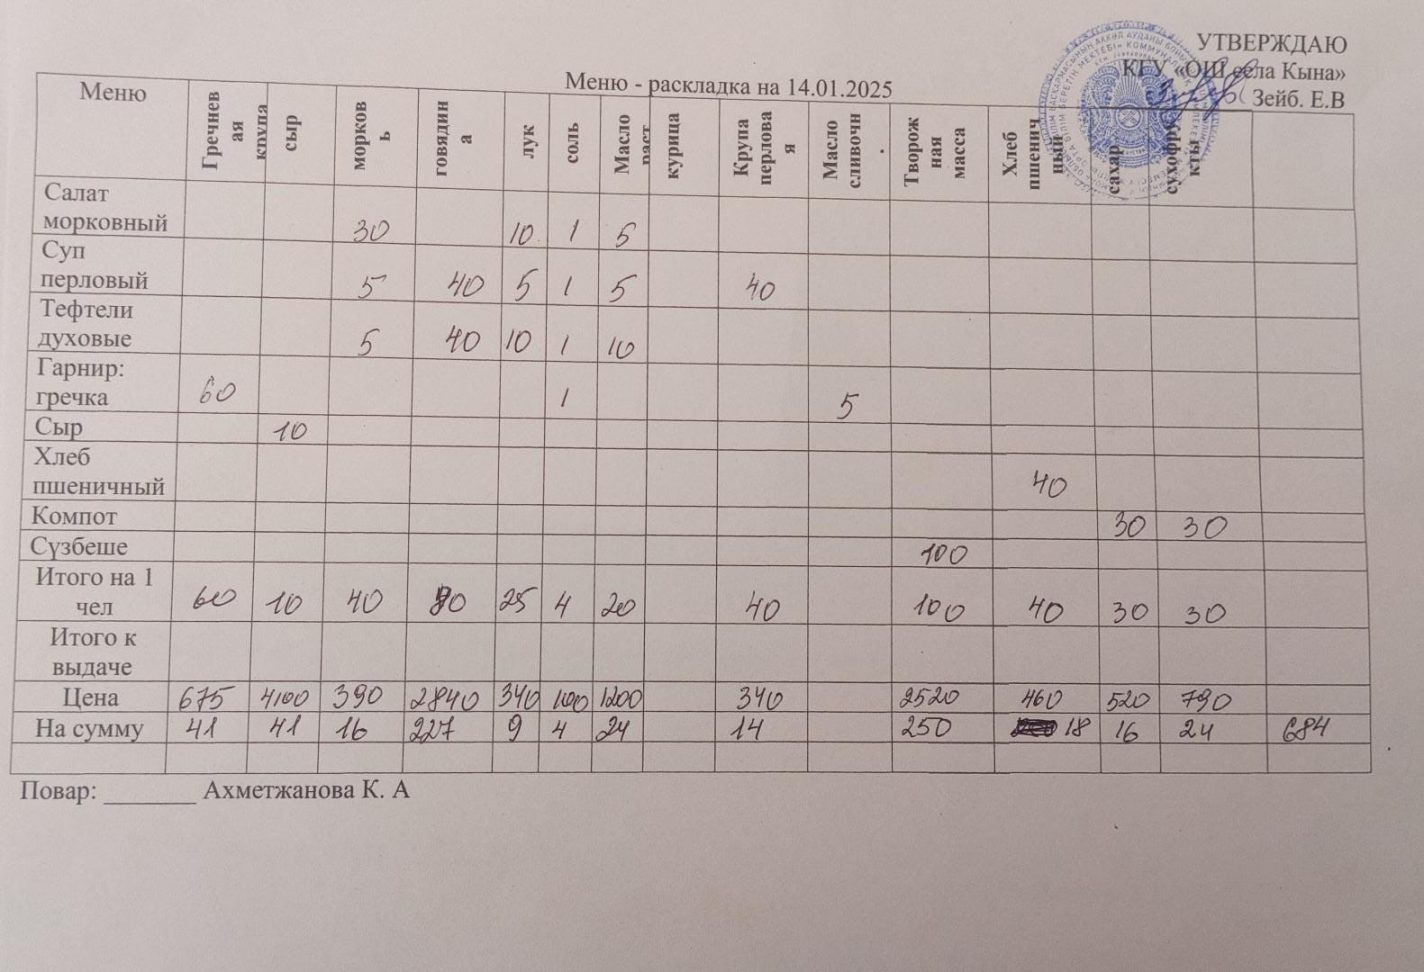 УТВЕРЖДАЮ
КГУ «ОШ села Кына»
Зейб. Е.В
Меню - раскладка на 14.01.2025
Меню Гречневая крупа сыр морковь говядина лук соль Масло раст курица Крупа перловая Масло сливочн. Творожная масса Хлеб пшеничный сахар сухофрукты
Салат
морковный 30 10 1 5
Суп
перловый 5 40 5 1 5 40
Тефтели
духовые 5 40 10 1 10
Гарнир:
гречка 60 1 5
Сыр 10
Хлеб
пшеничный 40
Компот 30 30
Сүзбеше 100
Итого на 1
чел 60 10 40 80 25 4 20 40 100 40 30 30
Итого к
выдаче
Цена 675 4100 390 2840 340 100 1200 340 2520 460 520 790
На сумму 41 41 16 227 9 4 24 14 250 18 16 24 684
Повар: _______ Ахметжанова К. А